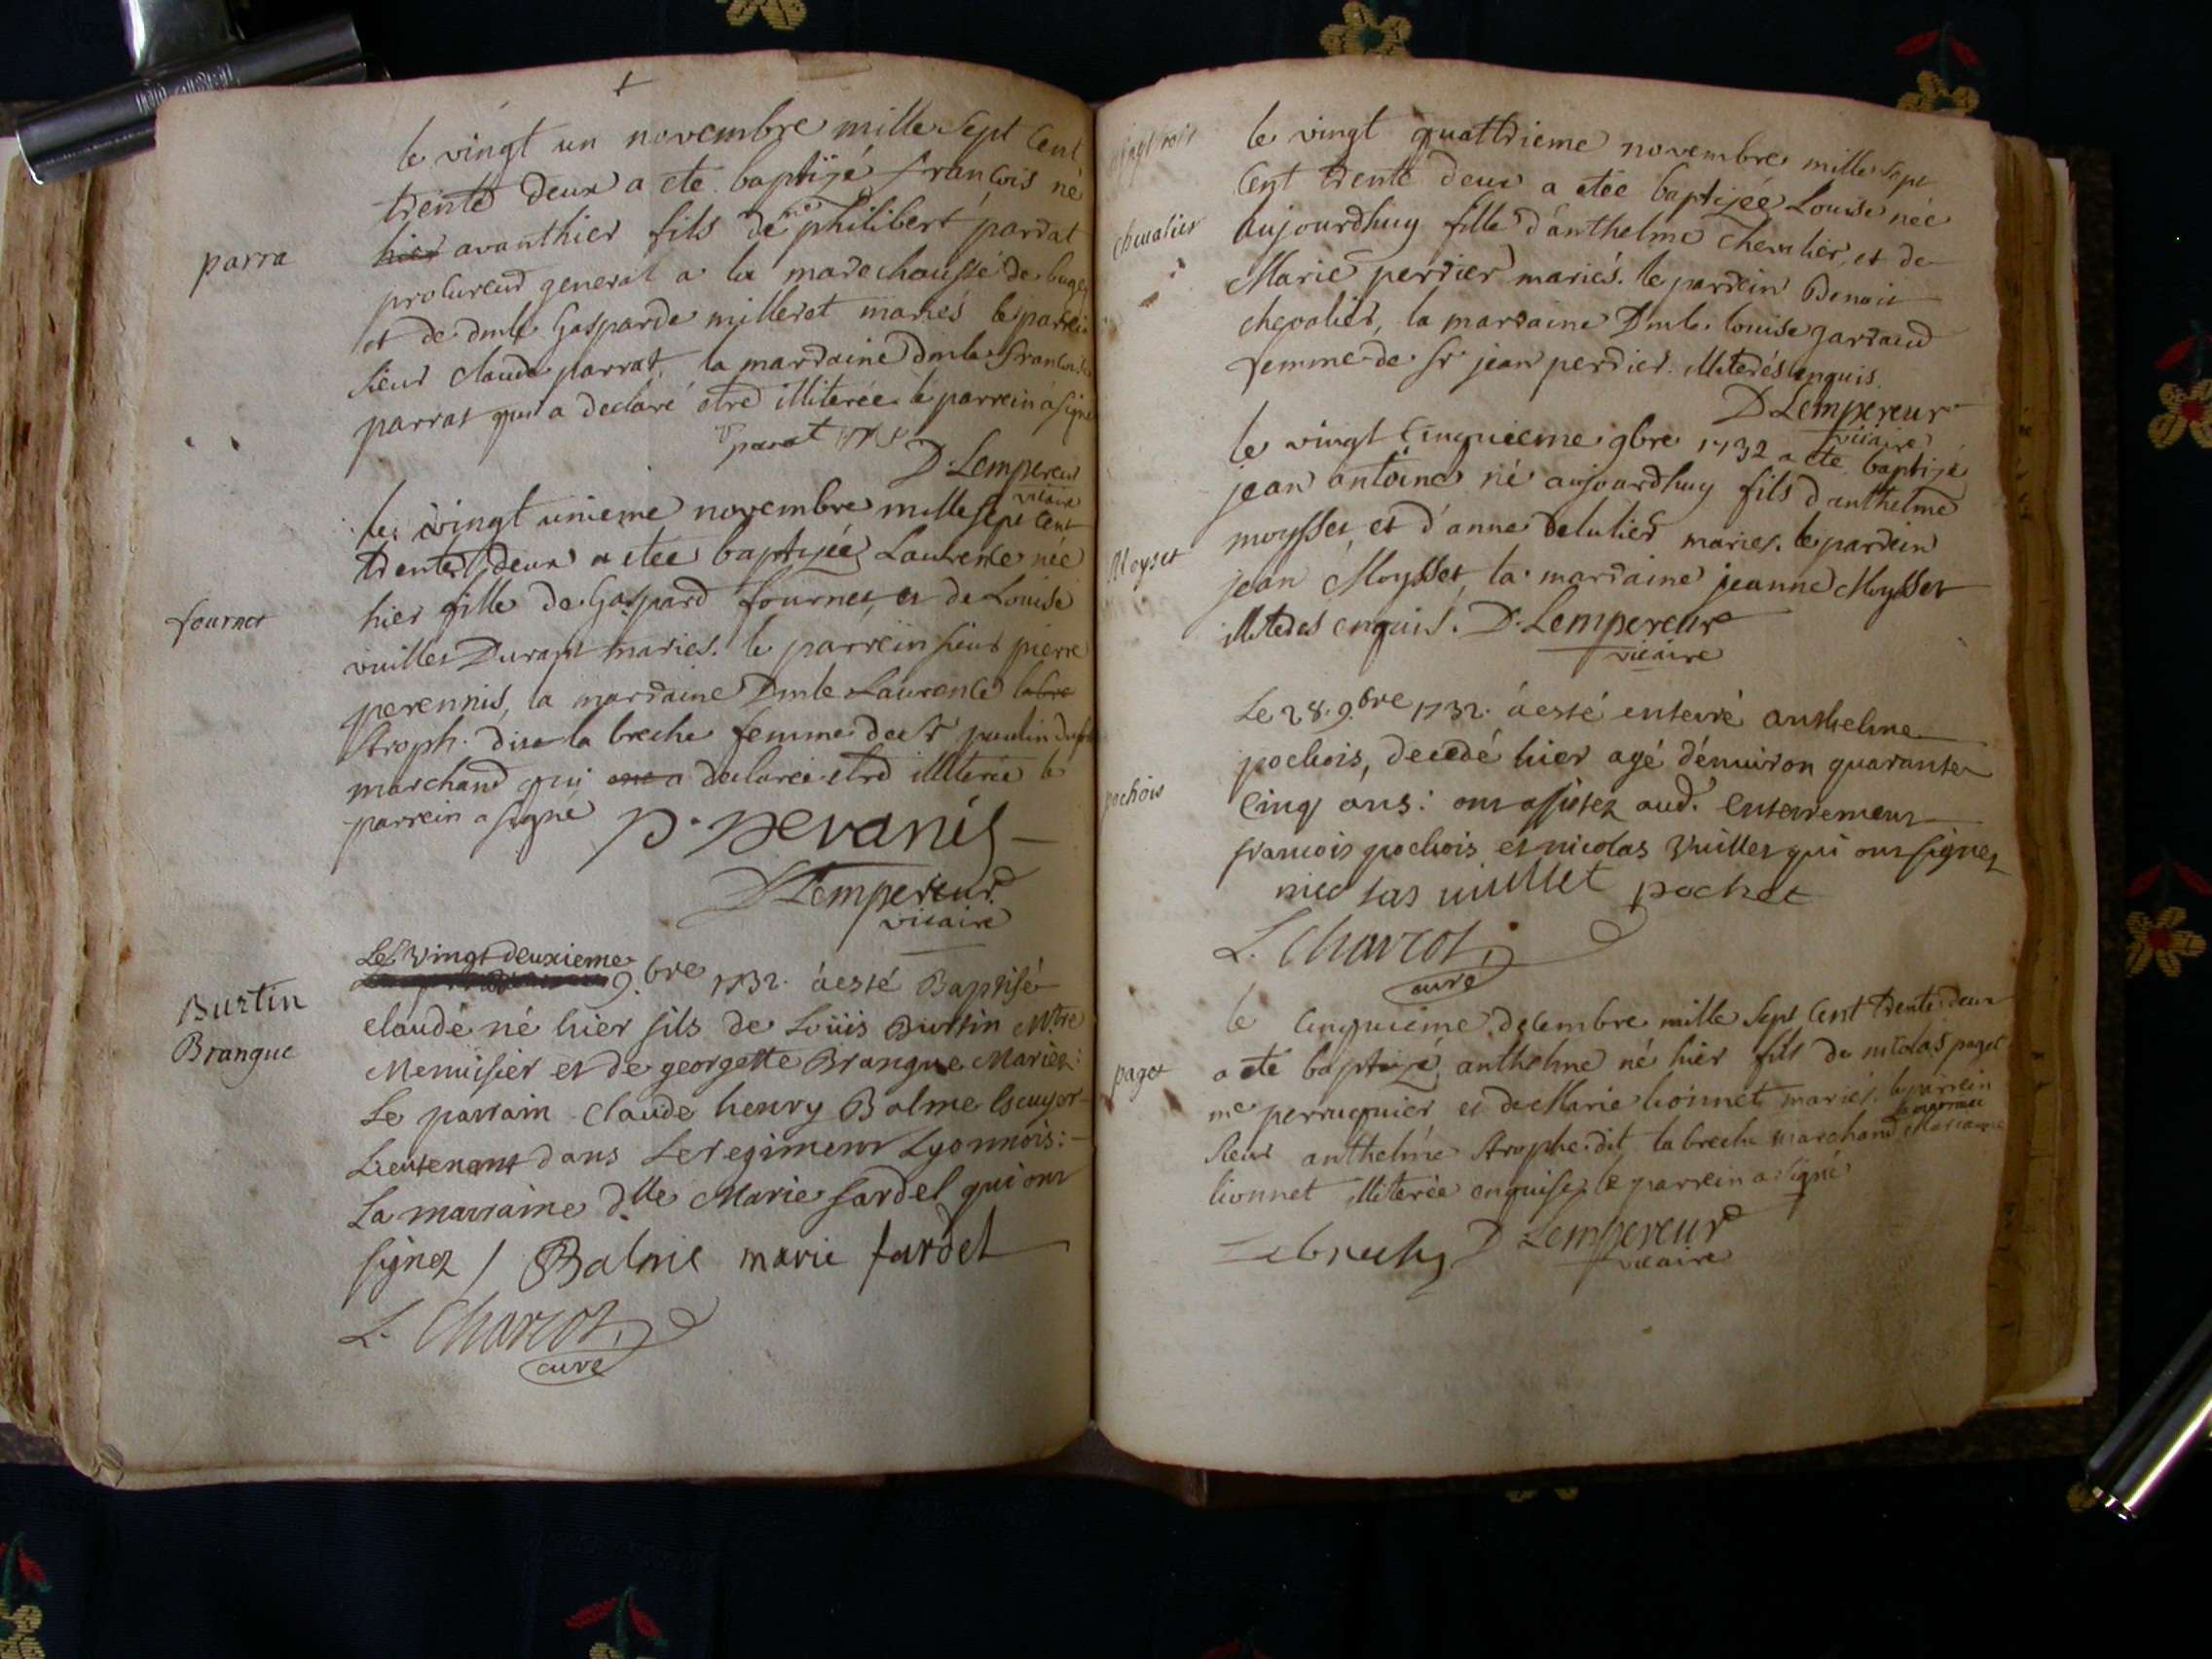 le vingt un novembre mille Sept Cent
trente Deux a ete baptizé francois né
parra
hier avanthier fils de me philibert parrat
procureur general a la marechaussé de bugey
et de dmle Gasparde milleret mariés le parrein
sieur claude parrat, la marraine dmle francoise
parrat qui a declaré etre illiterée le parrein a signé
parat
D. Lempereur
vicaire
le vingt unieme novembre mille sept cent
trente deux a etée baptizée Laurence née
fournet
hier fille de Gaspard fournet, et de Louise
vuillet Durant mariés. le parrein sieur pierre
perennis, la marraine Dmle Laurence labre
Stroph. dite la breche femme de Sr paulin
marchand qui a declarée etre illiterée le
parrein a signé P. Peranis
D Lempereur
vicaire
Le Vingt deuxieme
9.bre 1732. à esté Baptisé
Burtin
Brangue
claude né hier fils de Loüis Burtin Mtre
Menuisier et de georgette Brangue Mariez:
Le parrain claude henry Balme Escuyer
Lieutenent dans Le regiment Lyonnois:
La marraine dlle Marie sardel qui ont
signez / Balme marie fardel
L. Charcot
curé
le vingt quattrieme novembre mille Sept
Cent trente deux a etée baptizée Louise née
chevalier
Aujourdhuy fille d'anthelme chevalier, et de
Marie perrier mariés. le parrein Benoit
chevalier, la marraine Dmle louise garraud
femme de Sr jean perrier. illiterés enquis.
D Lempereur
vicaire
le vingt Cinquieme 9bre 1732 a ete baptizé
jean antoine né aujourdhuy fils d'anthelme
Moyset
moysset, et d'anne Delulier mariés. le parrein
jean Moysset, la marraine jeanne Moysset
illiterés enquis. D. Lempereur
vicaire
Le 28. 9.bre 1732. à esté enterré anthelme
pochois, decedé hier agé d'environ quarante
pochois
Cinq ans: ont assistez aud. Enterrement
francois pochois et nicolas Vuillet qui ont signez
nicolas vuillet pochet
L. Charcot
curé
le Cinquieme decembre mille Sept Cent trente deux
paget
a ete baptizé anthelme né hier fils de nicolas paget
me perruquier et de Marie lionnet mariés. le parrein
Sieur anthelme Strophe dit la breche marchand la marraine Marianne
lionnet illiterée enquise, le parrein a signé
Labreche D Lempereur
vicaire